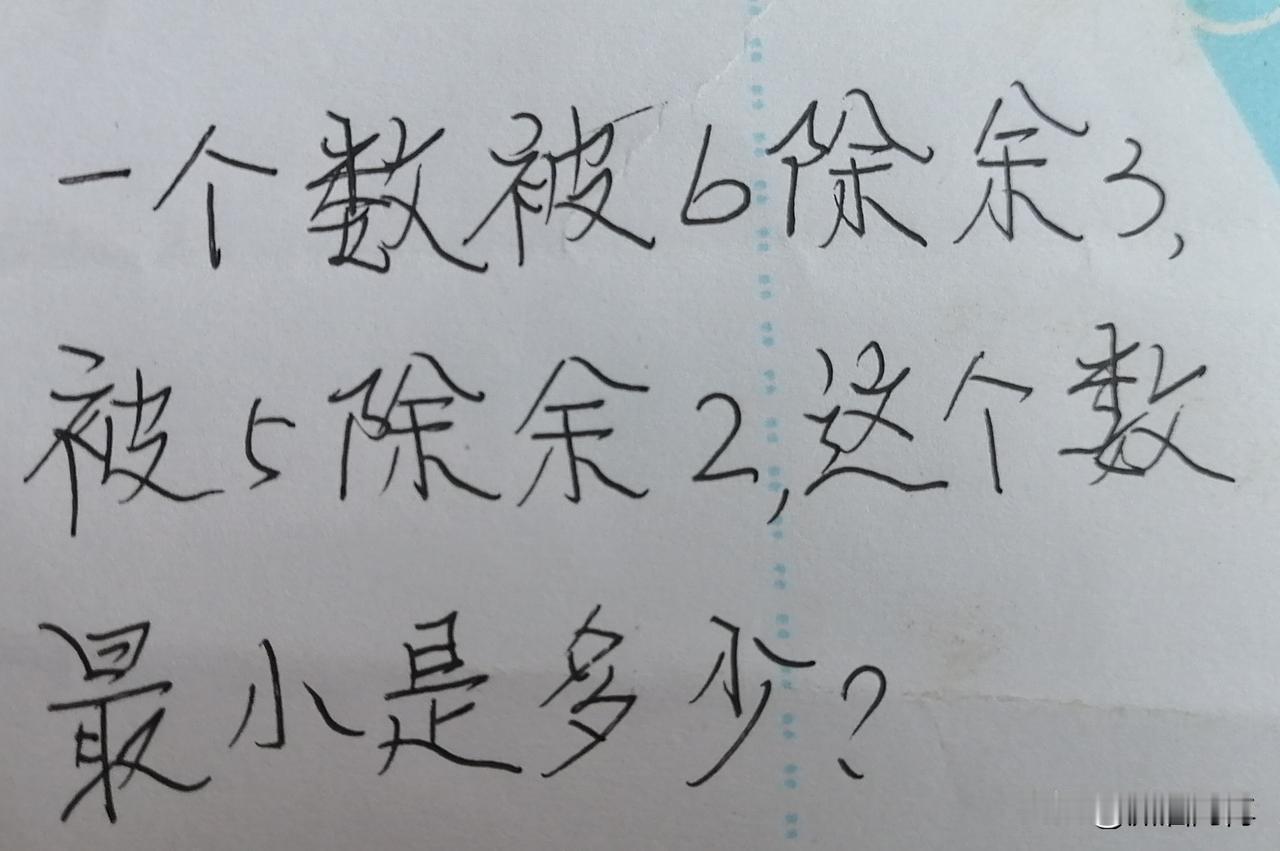 一个数被6除余3,
被5除余2,这个数
最小是多少?